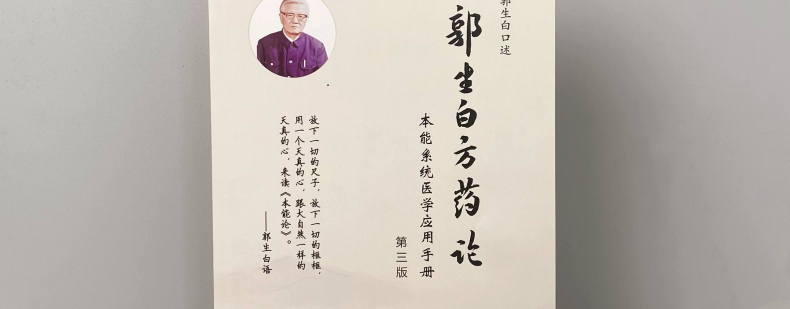 郭生白口述
郭生白方药论
本能系统医学应用手册
第三版
放下一切的尺子，放下一切的框框，
用一个天真的心，跟大自然一样的
天真的心，来读《本能论》。
——郭生白语